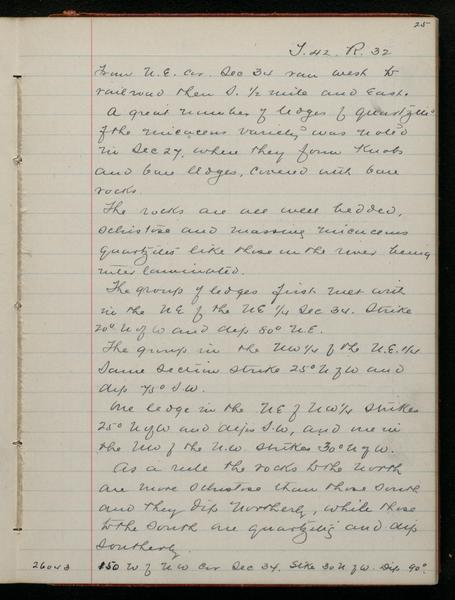 25
T. 42. R. 32
From N.E. cor. Sec 34 ran west to
railroad then S. 1/2 mile and East.
A great number of ledges of quartzite
of the micaceous variety was noted
in Sec 27, where they form Knobs
and bare ledges, covered with bare
rocks.
The rocks are all well bedded,
schistose and massive micaceous
quartzites like those in the river being
inter laminated.
The group of ledges first met with
in the N.E. of the NE 1/4 Sec 34. Strike
20° N of W and dip 80° N.E.
The group in the NW 1/4 of the N.E. 1/4
same section strike 25° N of W and
dip 75° S.W.
One ledge in the NE of NW 1/4 strikes
25° N of W and dips S.W, and one in
the NW of the N.W. strikes 30° N of W.
As a rule the rocks to the North
are more schistose than those South
and they dip Northerly, while those
to the South are quartzitic and dip
Southerly.
26043 150 W of NW cor Sec 34. Stke 30 N of W. Dip 90°.